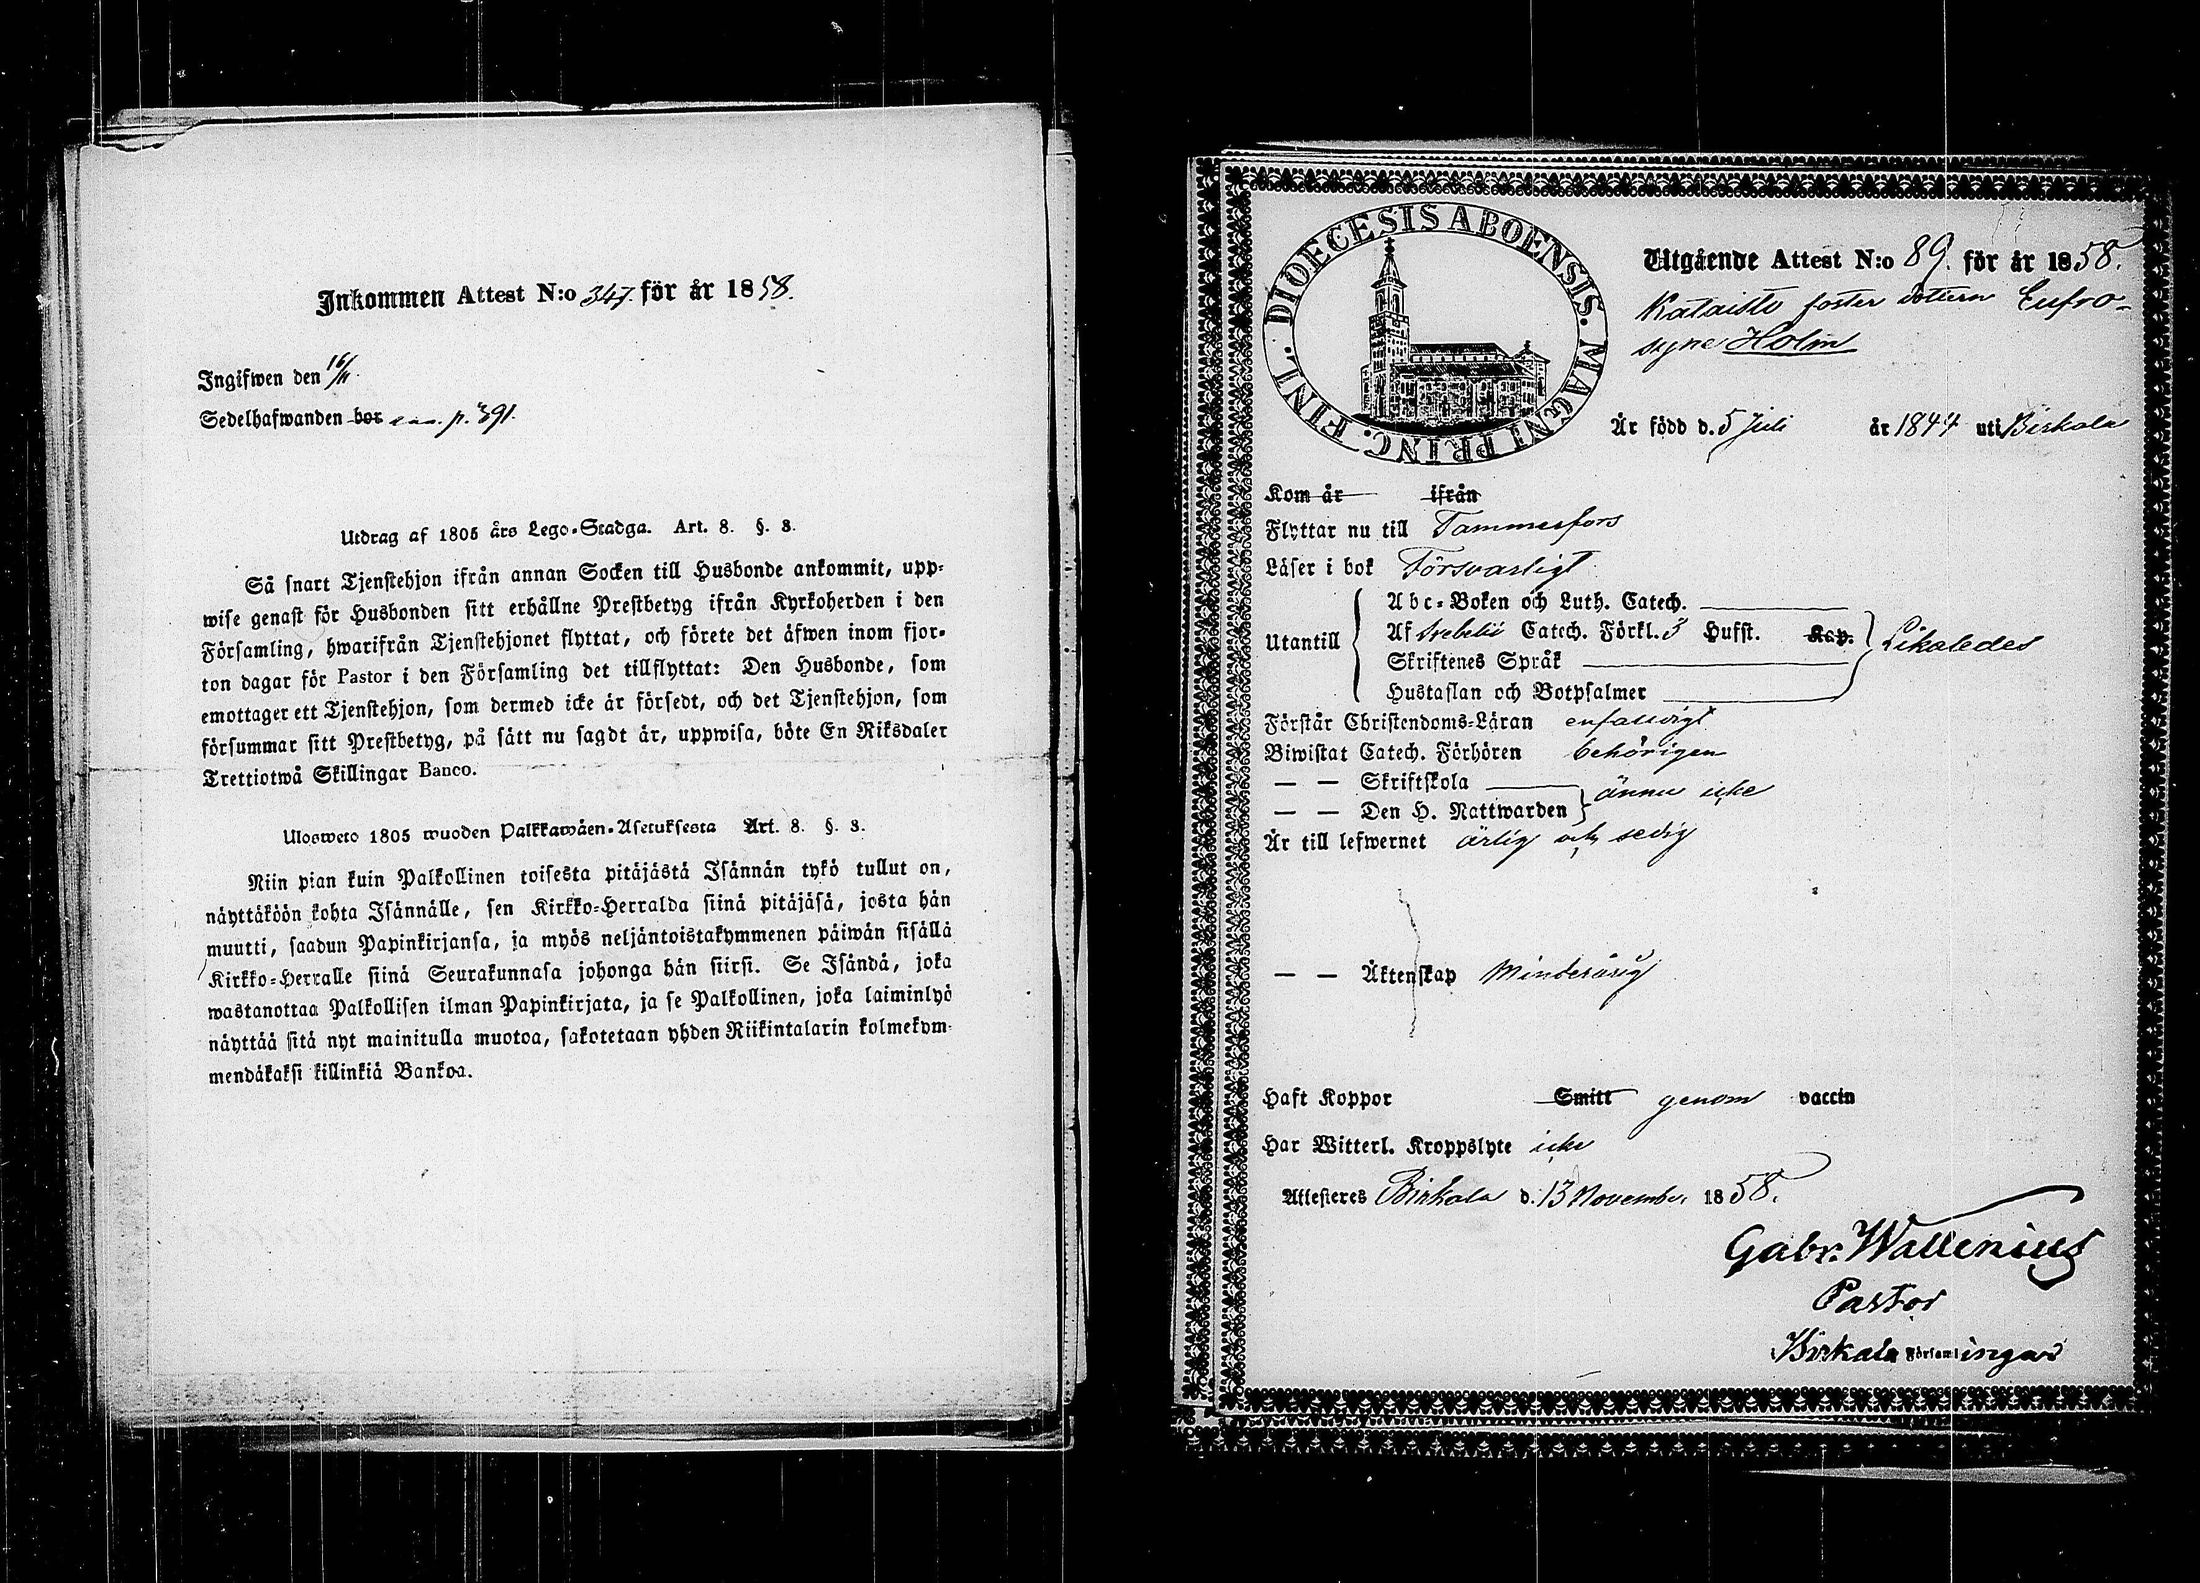 Inkommen Attest N:o 347. för år 1858.
Ingifwen den 16/11.
Sedelhafwanden bor p. 391.
Utdrag af 1805 års Lego-Stadga. Art. 8. §. 8.
Så snart Tjenstehjon ifrån annan Socken till Husbonde ankommit, upp-
wise genast för Husbonden sitt erhållne Prestbetyg ifrån Kyrkoherden i den
Församling, hwarifrån Tjenstehjonet flyttat, och förete det äfwen inom fjor-
ton dagar för Pastor i den Församling det tillflyttat: Den Husbonde, som
emottager ett Tjenstehjon, som dermed icke är försedt, och det Tjenstehjon, som
försummar sitt Prestbetyg, på sätt nu sagdt är, uppwisa, böte En Riksdaler
Trettiotwå Skillingar Banco.
Ulosweto 1805 wuoden Palkkawäen-Asetuksesta Art. 8. §. 8.
Niin pian kuin Palkollinen toisesta pitäjästä Isännän tykö tullut on,
näyttäköön kohta Isännälle, sen Kirkko-Herralda siinä pitäjäsä, josta hän
muutti, saadun Papinkirjansa, ja myös neljäntoistakymmenen päiwän sisällä
Kirkko-Herralle siinä Seurakunnasa johonga hän siirsi. Se Isändä, joka
wastanottaa Palkollisen ilman Papinkirjata, ja se Palkollinen, joka laiminlyö
näyttää sitä nyt mainitulla muotoa, sakotetaan yhden Riikintalarin kolmekym-
mendäkaksi killinkiä Bankoa.
DIOECESIS ABOENSIS. MAGNI PRINC. FINL.
Utgående Attest N:o 89. för år 1858.
Kataisto foster dottern Eufro-
syne Holm
Är född d. 5 Juli år 1844 uti Birkala
Kom år ifrån
Flyttar nu till Tammerfors
Läser i bok Försvarligt
Abc-Boken och Luth. Catech.
Utantill Af Svebelii Catech. Förkl. 3 Hufst. Kap. Likaledes
Skriftenes Språk
Hustaflan och Botpsalmer
Förstår Christendoms-Läran enfaldigt
Biwistat Catech. Förhören behörigen
— — Skriftskola
— — Den H. Nattwarden ännu icke
Är till lefwernet ärlig och sedig
— — Äktenskap Minderårig
Haft Koppor Smitt genom vaccin
Har Witterl. Kroppslyte icke
Attesteres Birkala d. 13 November 1858.
Gabr. Wallenius
Pastor
Birkala Församlingar